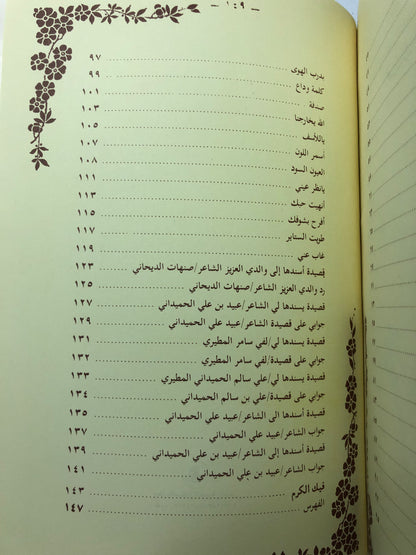 - ١٤٩ -
بدرب الهوى ٩٧
كلمة وداع ٩٩
صدفة ١٠١
الله يخارجنا ١٠٣
ياللأسف ١٠٥
أسمر اللون ١٠٧
العيون السود ١٠٨
يانظر عيني ١١١
أنهيت حبك ١١٣
أفرح بشوفك ١١٥
طويت الستاير ١١٧
غاب عني ١١٩
قصيدة أسندها إلى والدي العزيز الشاعر/صنهات الديحاني ١٢٣
رد والدي العزيز الشاعر/صنهات الديحاني ١٢٥
قصيدة يسندها لي الشاعر/عبيد بن علي الحميداني ١٢٧
جوابي على قصيدة الشاعر/عبيد علي الحميداني ١٢٩
قصيدة يسندها لي/لفي سامر المطيري ١٣١
جوابي على قصيدة/لفي سامر المطيري ١٣٢
قصيدة يسندها لي/علي سالم الحميداني المطيري ١٣٣
جوابي على قصيدة/علي بن سالم الحميداني ١٣٤
قصيدة أسندها الى الشاعر/عبيد علي الحميداني ١٣٥
جواب الشاعر/عبيد علي الحميداني ١٣٧
قصيدة أسندها إلى الشاعر/عبيد بن علي الحميداني ١٣٩
جواب الشاعر/عبيد بن علي الحميداني ١٤١
فيك الكرم ١٤٣
الفهرس ١٤٧